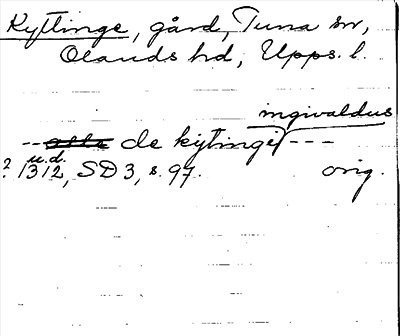 Kyttinge, gård, Tuna sn,
Olands hd, Upps. l.
ingivaldus
-- de kijtinge ---
u.d.
? 1312, SD 3, s. 97. orig.